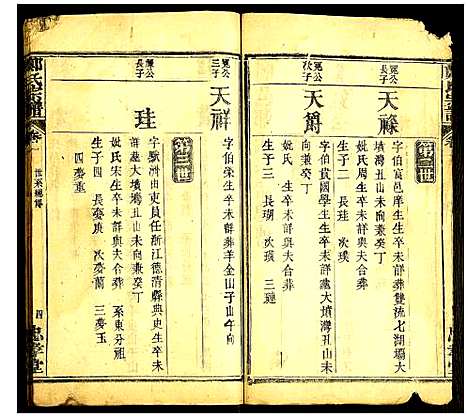 第二世
冕公長子
天祿
字伯富邑庠生生卒未詳葬雙流七湖壩大
墳灣丑山未向兼癸丁
妣氏周生卒未詳與夫合葬
生子二 長珪 次璞
冕公次子
天爵
字伯貴國學生生卒未詳葬大墳灣丑山未
向兼癸丁
妣氏 生卒未詳與夫合葬
生子三 長瑚 次璞 三璉
冕公三子
天祥
字伯榮生卒未詳葬羊金山子山午向
第三世
長子
珪
字默洲由吏員任浙江德清縣典史生卒未
詳葬大墳灣丑山未向兼癸丁
妣氏宋生卒未詳與夫合葬 系東分祖
生子四 長
四
鄭氏宗譜
卷一
世系總譜
四
忠孝堂